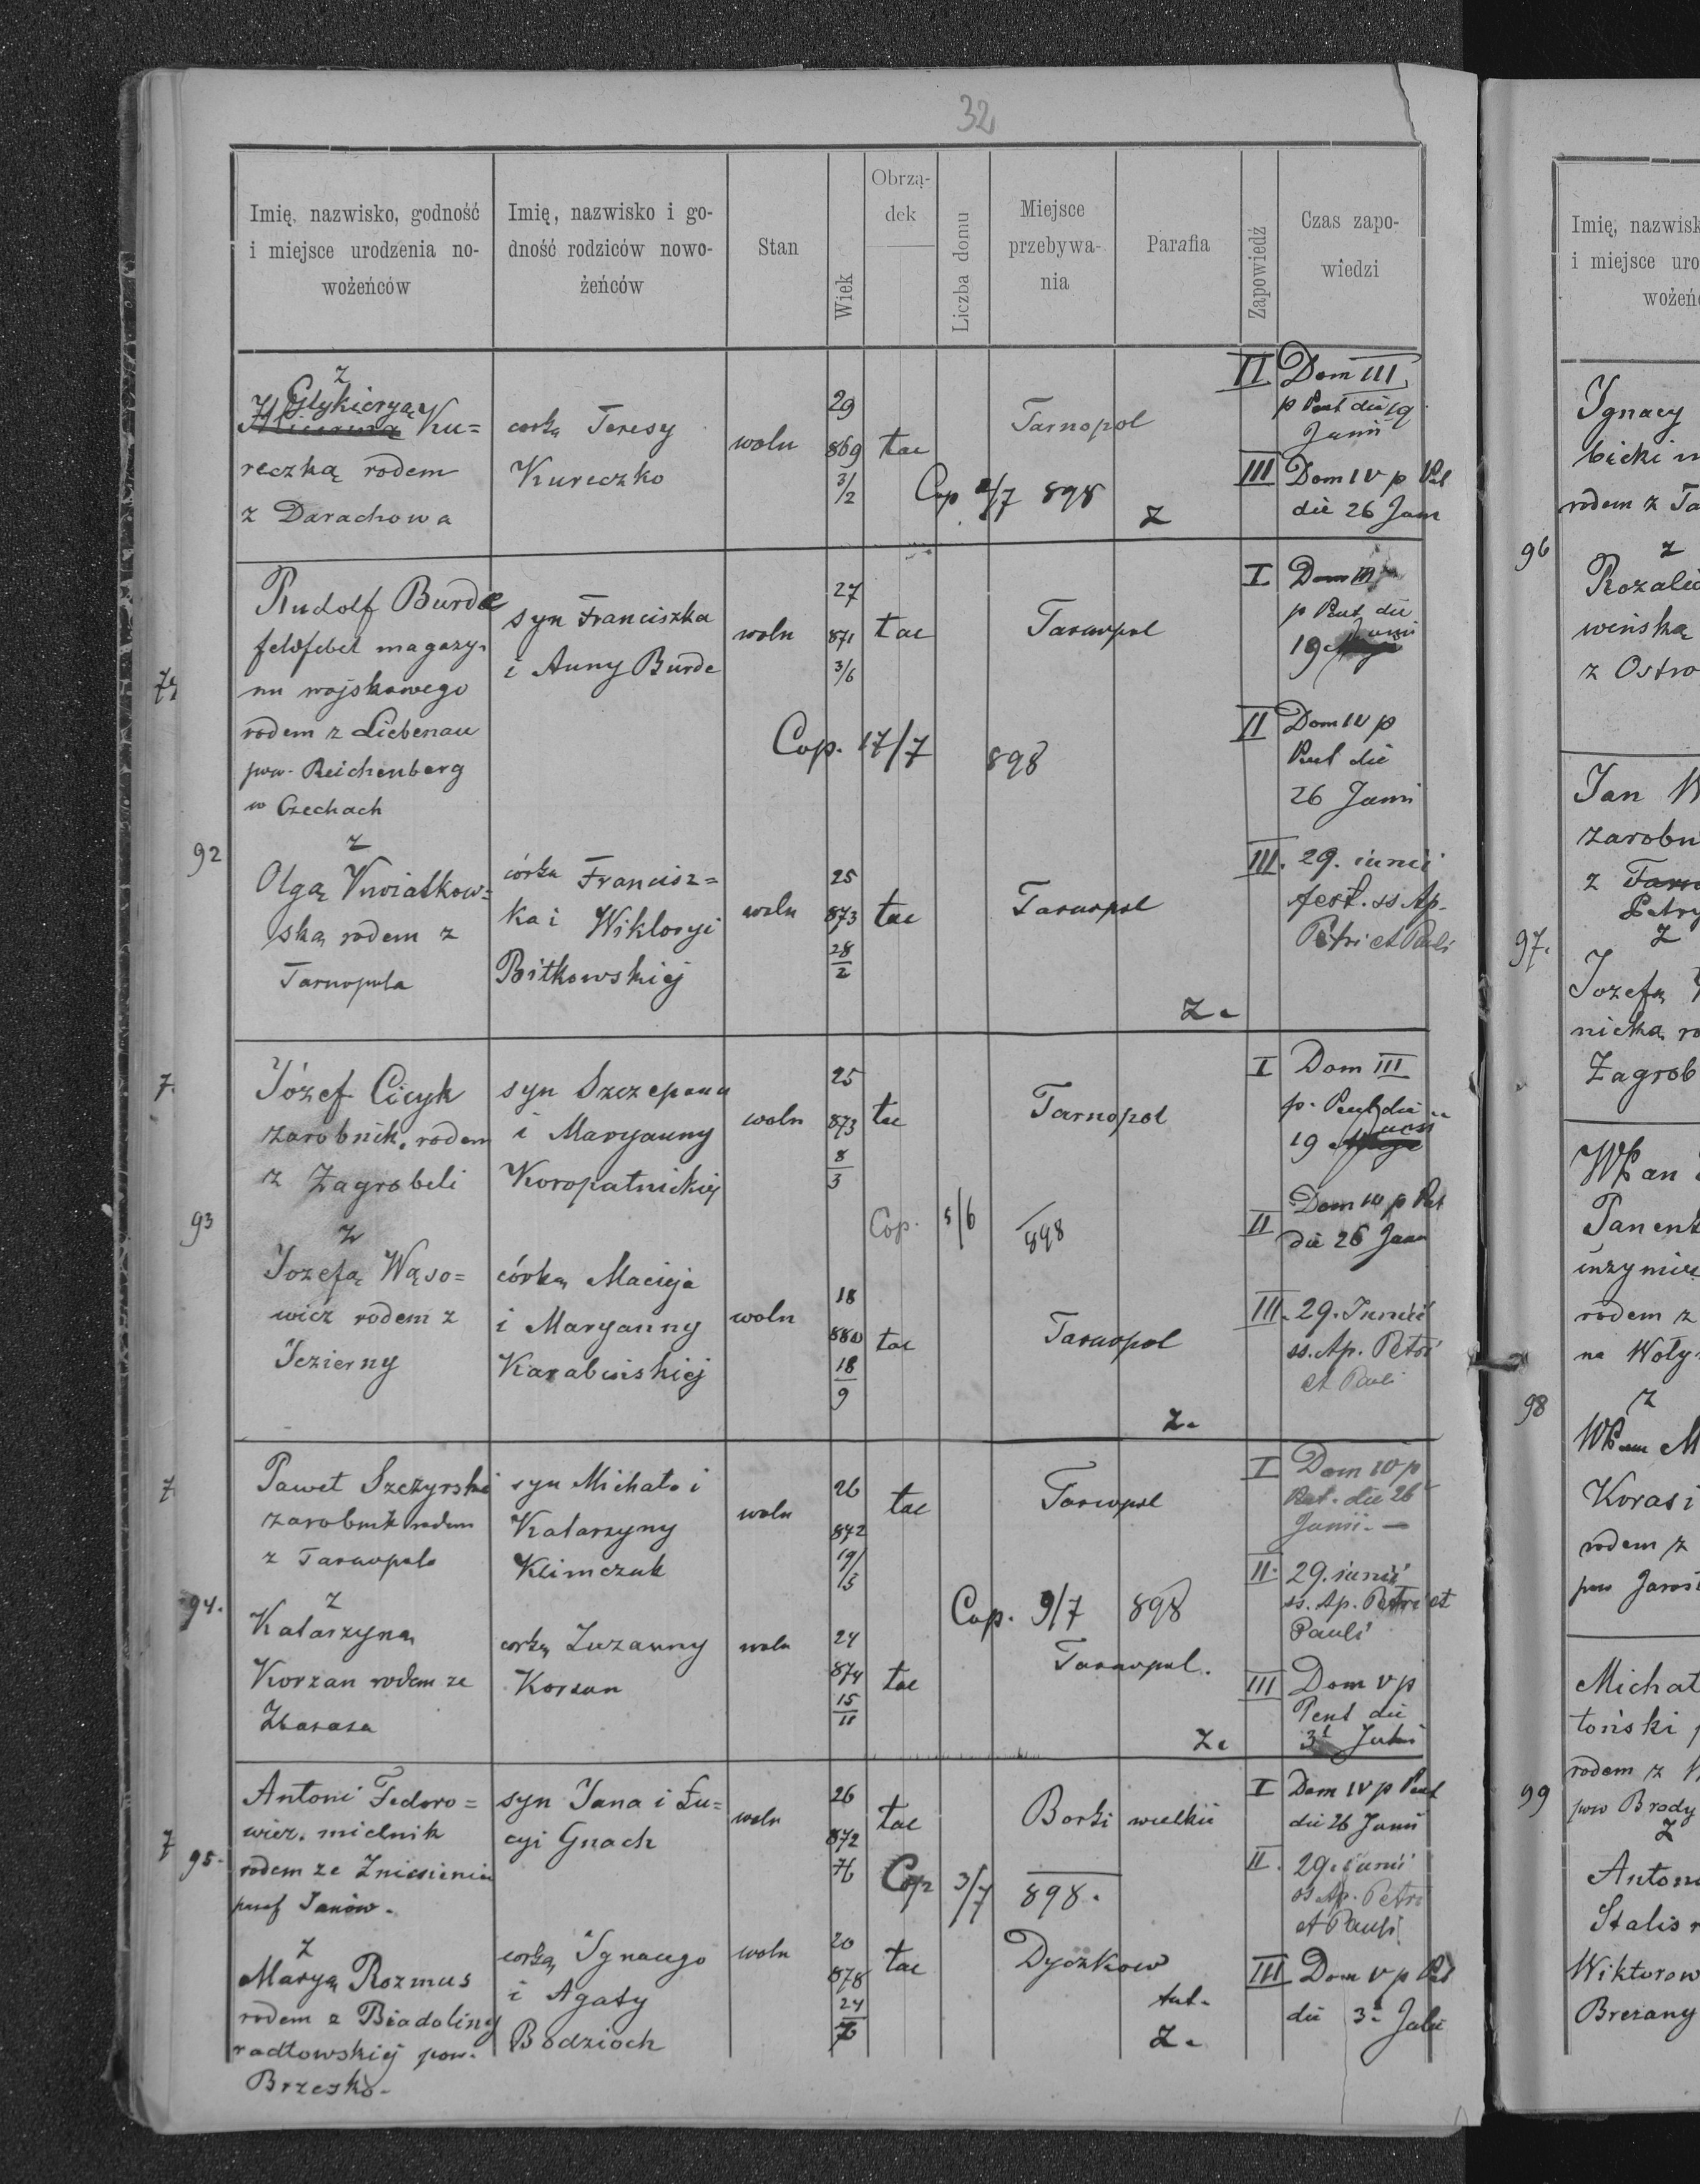 32
Imię, nazwisko, godność
i miejsce urodzenia no-
wożeńców
Imię, nazwisko i go-
dność rodziców nowo-
żeńców
Stan
Wiek
Obrzą-
dek
Liczba domu
Miejsce
przebywa-
nia
Parafia
Zapowiedź
Czas zapo-
wiedzi
z
Glykieryą Ku=
reczką rodem
z Darachowa
corką Teresy
Kureczko
woln
29
869
3/2
łac
Tarnopol
Cop 2/7 898
z
II Dom III
p Pent die 19
Junii
III Dom IV p Pent
die 26 Juni
Rudolf Burde
feldfebel magazy-
nu wojskowego
rodem z Liebenau
pow. Reichenberg
w Czechach
syn Franciszka
i Anny Burde
woln
27
871
3/6
łac
Tarnopol
Cop. 17/7 898
I Dom III
p Pent die
19 Junii
II Dom IV p
Pent die
26 Junii
92
z
Olgą Kwiatkow=
ską rodem z
Tarnopola
córka Francisz=
ka i Wiktoryi
Bitkowskiej
woln
25
873
28
2
łac
Tarnopol
z.
III. 29. iunii
fest. ss. Ap.
Petri et Pauli
7.
Józef Cicyk
zarobnik, rodem
z Zagrobeli
syn Szczepana
i Maryanny
Koropatnickiej
woln
25
873
8
3
łac
Tarnopol
I Dom III
p. Pent die
19 Junii
Cop. 5/6 898
II Dom IV p Pent
die 26 Juni
93
z
Jozefą Wąso=
wicz rodem z
Jezierny
córką Macieja
i Maryanny
Karabińskiej
woln
18
880
18
9
łac
Tarnopol
z.
III. 29. Iunii
ss. Ap. Petri
et Pauli
7
Paweł Szczyrski
zarobnik rodem
z Tarnopola
syn Michała i
Katarzyny
Klimczuk
woln
26
872
19/5
łac
Tarnopol
I Dom IV p
Pent. die 26
Junii. —
II. 29. iunii
ss. Ap. Petri et
Pauli
Cop. 9/7 898
94.
z
Katarzyną
Korzan rodem ze
Zbaraża
corką Zuzanny
Korzan
woln
24
874
15
11
łac
Tarnopol.
z.
III Dom V p
Pent die
3 Julii
7
95.
Antoni Fedoro=
wicz, mielnik
rodem ze Zniesienia
paraf Janów.
syn Jana i Łu=
cyi Gnach
woln
26
872
łac
Borki wielkie
Cop 3/7 898.
I Dom IV p Pent
die 26 Junii
II. 29. iunii
ss Ap. Petri
et Pauli
z
Maryą Rozmus
rodem z Biadoliny
radłowskiej pow.
Brzesko.
corką Ignacego
i Agaty
Bodzioch
woln
20
878
24
7
łac
Dyczkow
tut.
z.
III Dom V p Pent
die 3 Julii
Imię, nazwisk
i miejsce uro
wożeń
Ignacy
bicki
rodem z Ta
96
z
Rozali
wińską
z Ostro
Jan W
zarobn
z
97.
z
Jozefą
nicką ro
Zagrob
WPan
Panenk
inżynier
rodem z
na Woły
98
z
M
Korasi
rodem z
pow Jaros
Michał
toński
rodem z
pow Brody
99
z
Antoni
Stalis
Wiktorow
Brezany